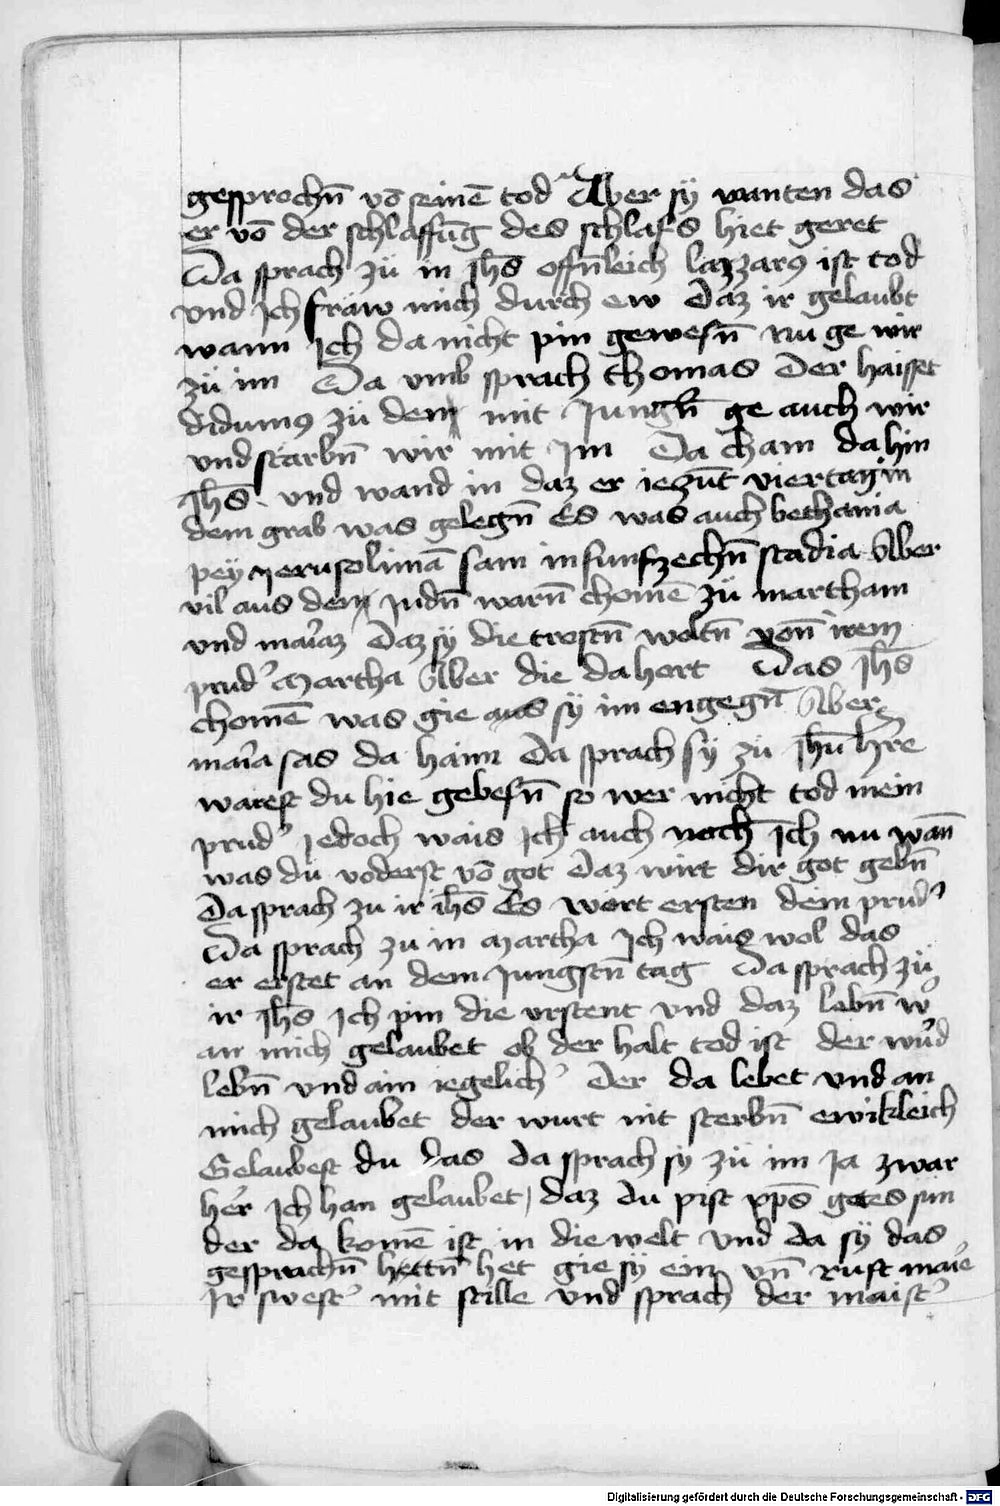 gesprochn̄ vō seinē tod Aber sy wanten das
er vō der schlaffūg des schlafs hiet geret
Da sprach zü in Jh̄s offn̄leich lazzarꝯ ist tod
vnd ich fräw mich durch ew Daz ir gelaubt
wann Ich da nicht pin gewesn̄ nu ge wir
zü im Da vmb sprach thomas Der haisset
didumꝯ zü dem mit Jungn̄ ge auch wir
vnd starbn̄ wir mit Im Da cham da hin
Jh̄s vnd wand in daz er iezūt vier tag in
dem grab was gelegn̄ Es was auch bethania
pey Jerusolimā sam in funfzechn̄ stadia Aber
vil aus dem Judn̄ warn̄ chomē zü martham
vnd mar̄az Daz sy die trostn̄ woltn̄ von irem
prud' Martha Aber die da hort Das Jh̄s
chomē was gie aus sy im engegn̄ Aber
mar̄a sas da haim Da sprach sy zü Jhū h're
warest du hie gebesn̄ so wer nicht tod mein
prud' Jedoch wais ich auch noch Ich nu wān
was dü voderst vō got Daz wirt dir got gebn̄
Da sprach zu ir ih̄s Es wirt ersten dein prud'
Da sprach zu in Martha Ich wais wol das
er erstet an dem Jungstn̄ tag Da sprach zü
ir Jh̄s Ich pin die vrstent vnd daz lebn̄ w'
an mich gelaubet ob der halt tod ist der wu'd
lebn̄ vnd ain iegelich' Der da lebet vnd an
mich gelaubet der wurt nit sterbn̄ ewikleich
Gelaubest du das Da sprach sy zü im Ja zwar
he'r Ich han gelaubet, daz du pist xp̄s gotes sun
der da komē ist in die welt vnd da sy das
gesprachn̄ hettn̄ het gie sy ein vn̄ ruft mar̄e
Ir swest' mit stille vnd sprach der maist'
Digitalisierung gefördert durch die Deutsche Forschungsgemeinschaft - DFG